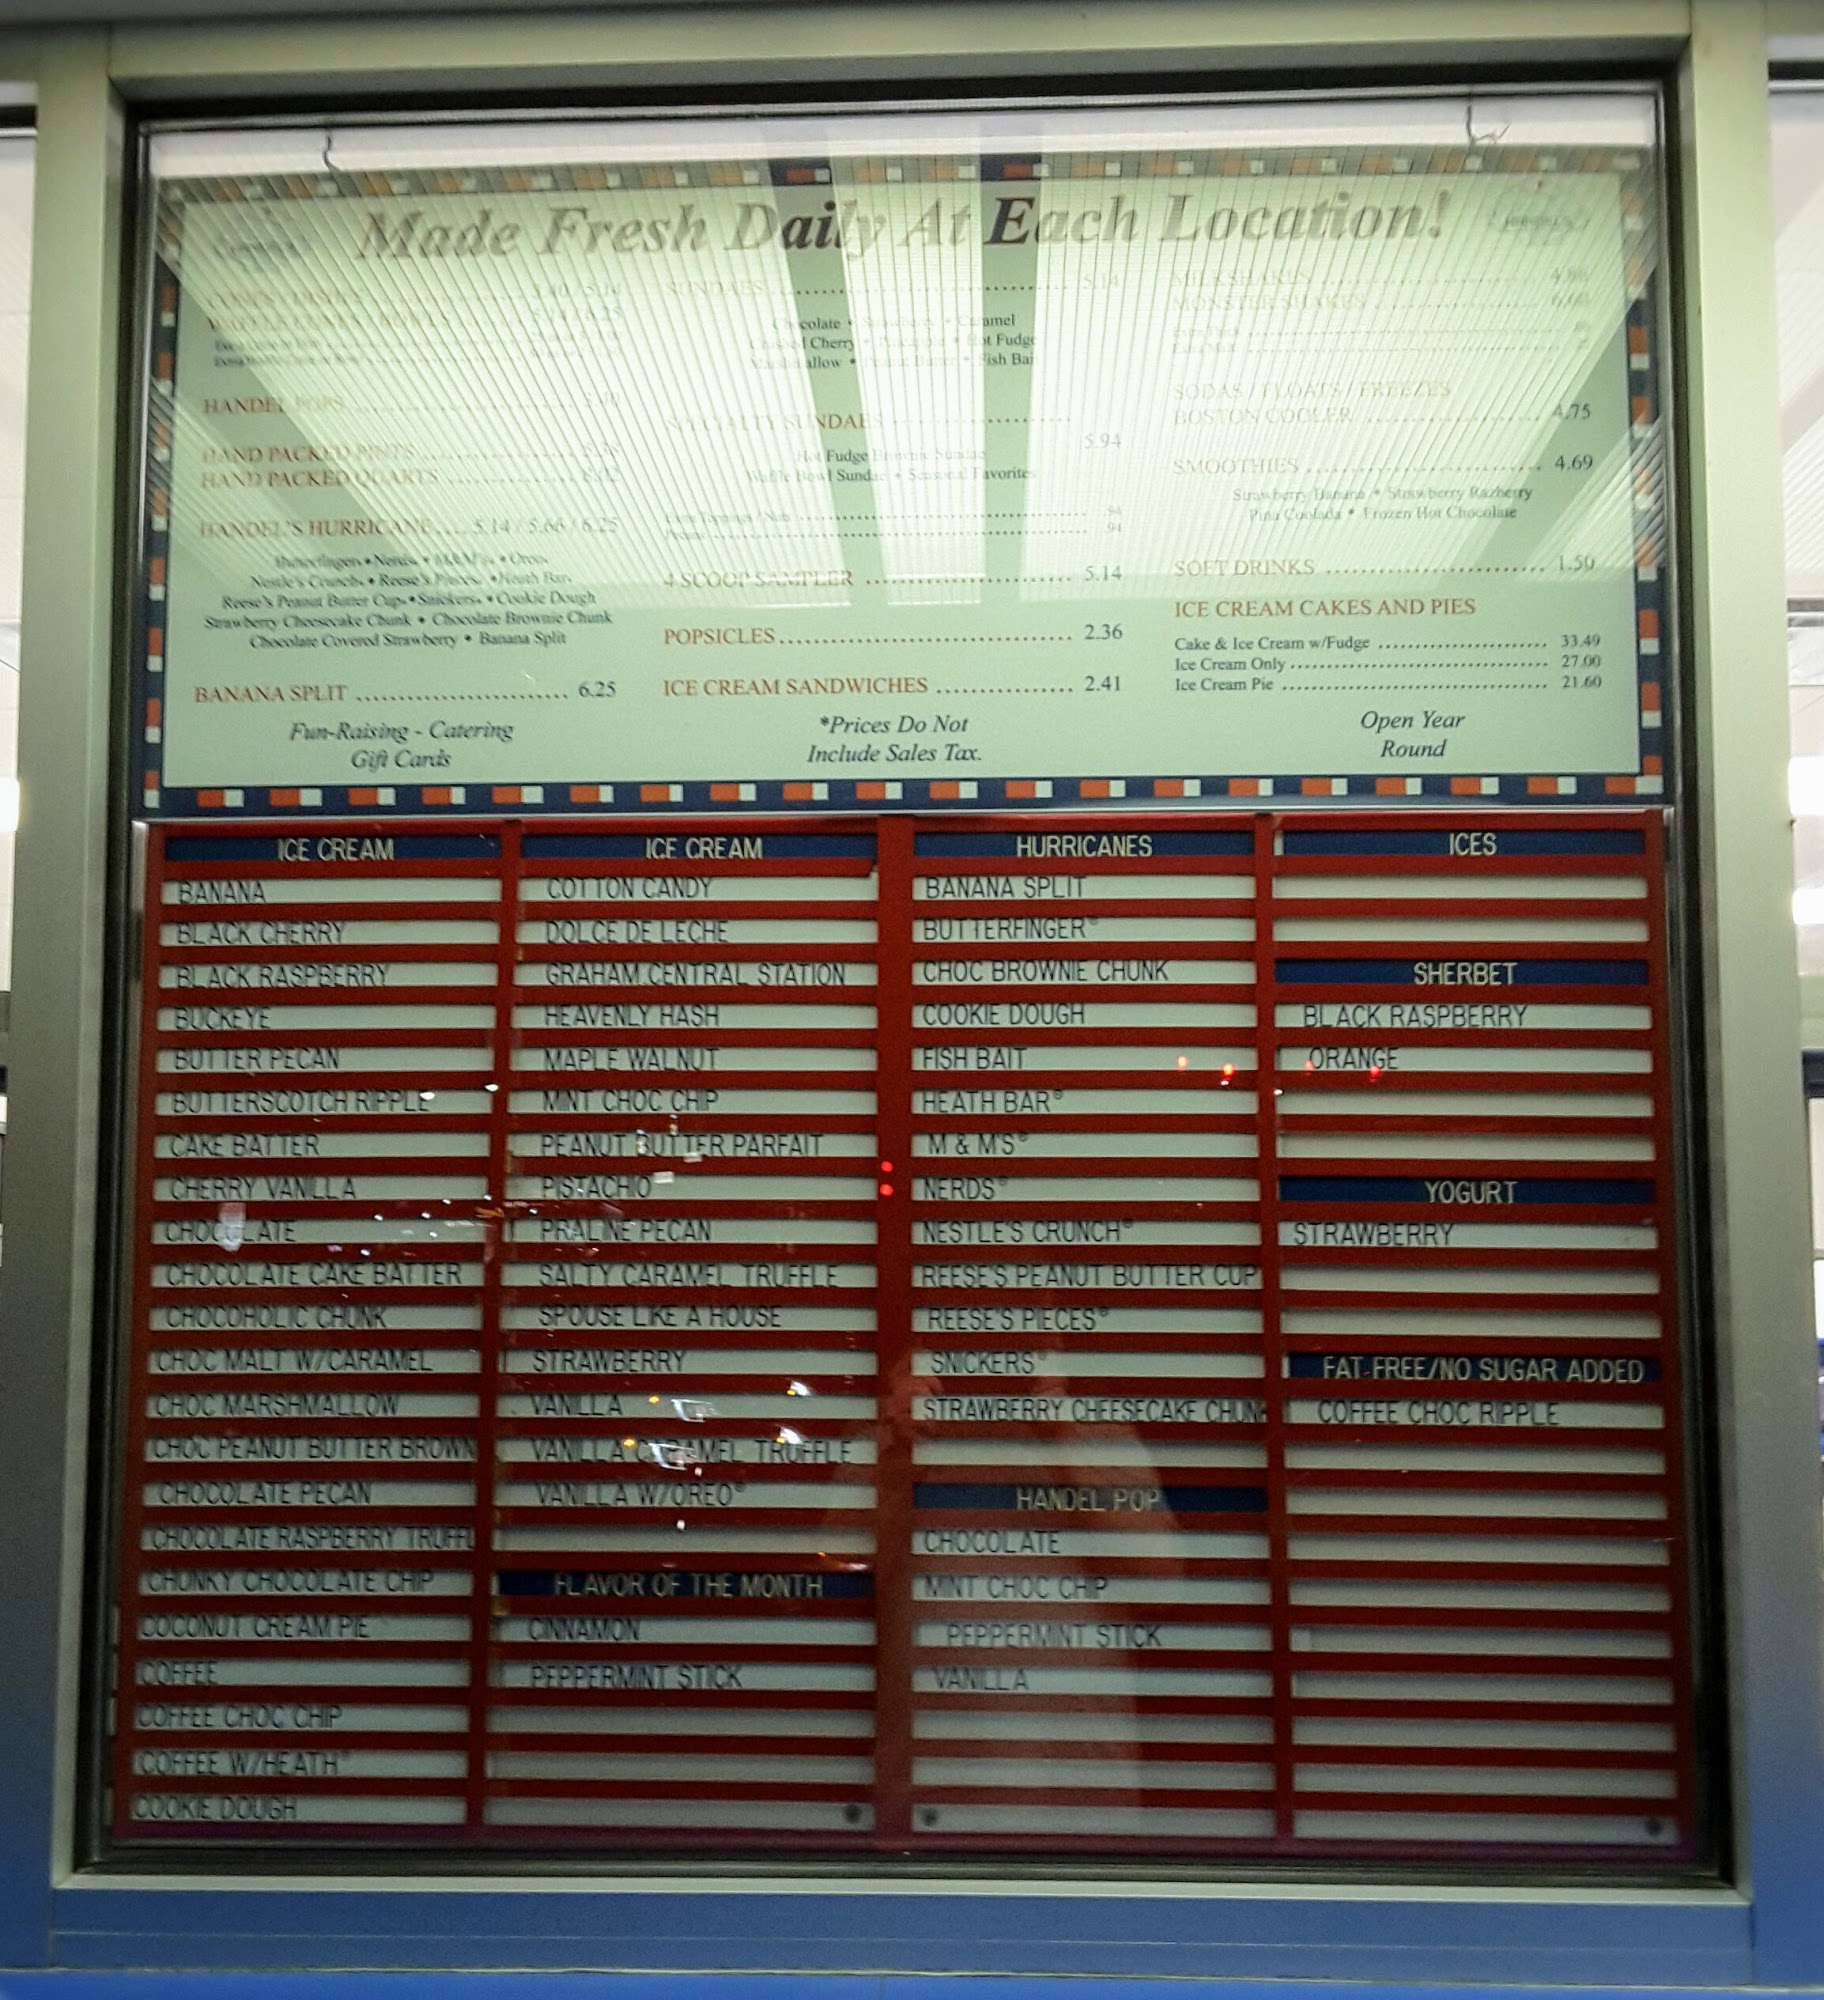 Made Fresh Daily At Each Location!
HANDEL POPS
HAND PACKED PINTS
HAND PACKED QUARTS
HANDEL'S HURRICANE.... 5.14 / 5.66 / 6.25
Butterfinger • Nerds • M&M's • Oreo
Nestle's Crunch • Reese's Pieces • Heath Bar
Reese's Peanut Butter Cup • Snickers • Cookie Dough
Strawberry Cheesecake Chunk • Chocolate Brownie Chunk
Chocolate Covered Strawberry • Banana Split
BANANA SPLIT ........................ 6.25
Fun-Raising - Catering
Gift Cards
SUNDAES ........................ 5.14
Chocolate • Strawberry • Caramel
Crushed Cherry • Pineapple • Hot Fudge
Marshmallow • Peanut Butter • Fish Bait
SPECIALTY SUNDAES ........................
5.94
Hot Fudge Brownie Sundae
Waffle Bowl Sundae • Seasonal Favorites
Extra Toppings / Nuts ........................ .94
Pecans ........................ .94
4 SCOOP SAMPLER ........................ 5.14
POPSICLES ........................ 2.36
ICE CREAM SANDWICHES ................ 2.41
*Prices Do Not
Include Sales Tax.
MILKSHAKES
MONSTER SHAKES
SODAS / FLOATS / FREEZES
BOSTON COOLER ........................ 4.75
SMOOTHIES ........................ 4.69
Strawberry Banana • Strawberry Razberry
Pina Coolada • Frozen Hot Chocolate
SOFT DRINKS ........................ 1.50
ICE CREAM CAKES AND PIES
Cake & Ice Cream w/Fudge ........................ 33.49
Ice Cream Only ........................ 27.00
Ice Cream Pie ........................ 21.60
Open Year
Round
ICE CREAM
BANANA
BLACK CHERRY
BLACK RASPBERRY
BUCKEYE
BUTTER PECAN
BUTTERSCOTCH RIPPLE
CAKE BATTER
CHERRY VANILLA
CHOCOLATE
CHOCOLATE CAKE BATTER
CHOCOHOLIC CHUNK
CHOC MALT W/CARAMEL
CHOC MARSHMALLOW
CHOC PEANUT BUTTER BROWN
CHOCOLATE PECAN
CHOCOLATE RASPBERRY TRUFFL
CHUNKY CHOCOLATE CHIP
COCONUT CREAM PIE
COFFEE
COFFEE CHOC CHIP
COFFEE W/HEATH®
COOKIE DOUGH
ICE CREAM
COTTON CANDY
DOLCE DE LECHE
GRAHAM CENTRAL STATION
HEAVENLY HASH
MAPLE WALNUT
MINT CHOC CHIP
PEANUT BUTTER PARFAIT
PISTACHIO
PRALINE PECAN
SALTY CARAMEL TRUFFLE
SPOUSE LIKE A HOUSE
STRAWBERRY
VANILLA
VANILLA CARAMEL TRUFFLE
VANILLA W/OREO®
FLAVOR OF THE MONTH
CINNAMON
PEPPERMINT STICK
HURRICANES
BANANA SPLIT
BUTTERFINGER®
CHOC BROWNIE CHUNK
COOKIE DOUGH
FISH BAIT
HEATH BAR®
M & M'S®
NERDS®
NESTLE'S CRUNCH®
REESE'S PEANUT BUTTER CUP
REESE'S PIECES®
SNICKERS®
STRAWBERRY CHEESECAKE CHUNK
HANDEL POP
CHOCOLATE
MINT CHOC CHIP
PEPPERMINT STICK
VANILLA
ICES
SHERBET
BLACK RASPBERRY
ORANGE
YOGURT
STRAWBERRY
FAT-FREE/NO SUGAR ADDED
COFFEE CHOC RIPPLE